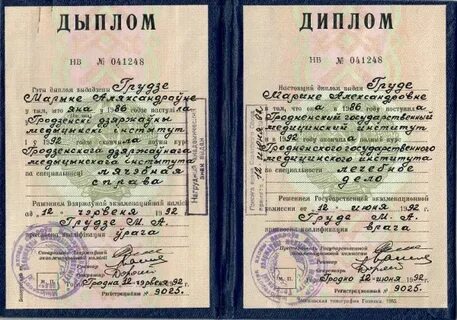 ДЫПЛОМ
НВ № 041248
Гэты дыплом выдадзены Грудзе
Марыне Аляксандраўне
у тым, што яна ў 1986 годзе паступіла
Гродзенскі дзяржаўны
медыцынскі інстытут
1992 поўны курс
Гродзенскага дзяржаўнага
медыцынскага інстытута
па спецыяльнасці лячэбная
справа
Рашэннем Дзяржаўнай экзаменацыйнай камісіі
ад "12" чэрвеня 1992
Грудзе М. А.
прысвоена кваліфікацыя
урача
Старшыня Дзяржаўнай
экзаменацыйнай камісіі
Рэктар
Сакратар
М. П.
Гродна 12 чэрвеня 1992 г.
Рэгістрацыйны № 9025.
ДИПЛОМ
НВ № 041248
Настоящий диплом выдан Груде
Марине Александровне
в том, что она в 1986 году поступила
Гродненский государственный
медицинский институт
1992 полный курс
Гродненского государственного
медицинского института
по специальности лечебное
дело
Решением Государственной экзаменационной
комиссии от "12" июня 1992
Груде М. А.
присвоена квалификация
врача
Председатель Государственной
экзаменационной комиссии
Ректор
Секретарь
М. П.
Гродно 12 июня 1992 г.
Регистрационный № 9025.